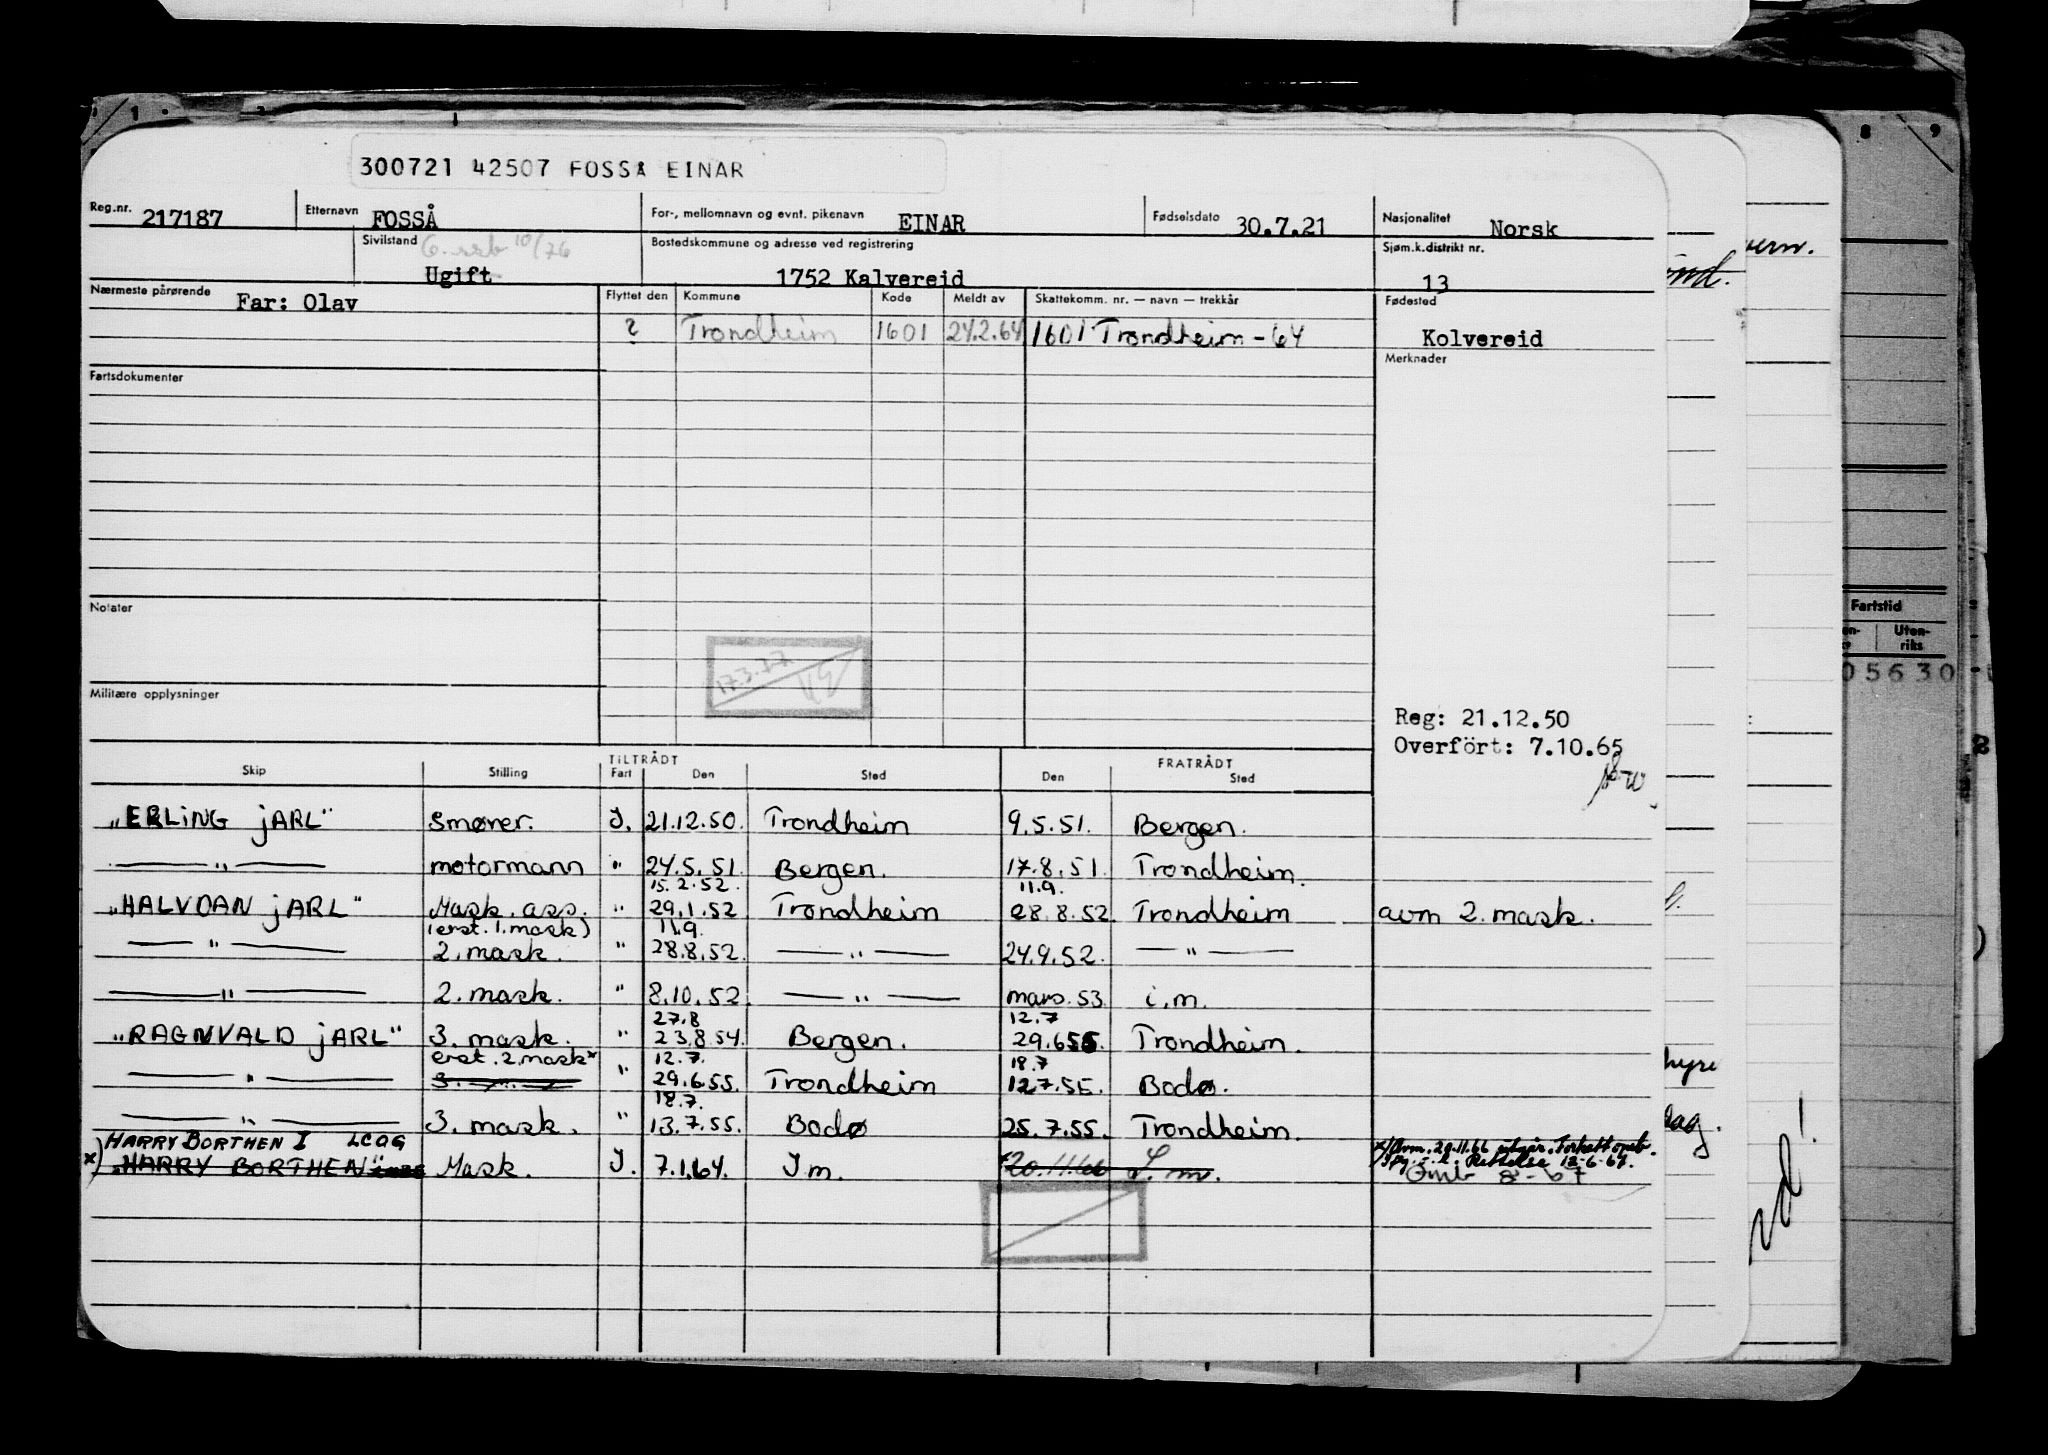 300721 42507 FOSSÅ EINAR
Reg.nr. 217187 Etternavn FOSSÅ For-, mellomnavn og evnt. pikenavn EINAR Fødselsdato 30.7.21 Nasjonalitet Norsk
Sivilstand G. ssb 10/76 Ugift Bostedskommune og adresse ved registrering 1752 Kalvereid Sjøm.k.distrikt nr. 13
Nærmeste pårørende Far: Olav Flyttet den Kommune Kode Meldt av Skattekomm. nr. — navn — trekkår Fødested
? Trondheim 1601 24.2.64 1601 Trondheim - 64 Kolvereid
Fartsdokumenter Merknader
Notater
17.3.77
Militære opplysninger
Reg: 21.12.50
Overfört: 7.10.65
TILTRÅDT FRATRÅDT
Skip Stilling Fart Den Sted Den Sted
„ERLING jARL" smører. J. 21.12.50. Trondheim 9.5.51. Bergen.
— " — motormann " 24.5.51. Bergen. 17.8.51. Trondheim.
15.2.52. 11.9.
„HALVDAN jARL" Mask. ass. " 29.1.52 Trondheim 28.8.52 Trondheim avm 2. mask.
(erst. 1. mask) 11.9.
— " — 2. mask. " 28.8.52. — " — 24.9.52. — " —
— " — 2. mask. " 8.10.52. — " — mars. 53. i.m.
27.8 12.7
„RAGNVALD jARL" 3. mask. " 23.8.54. Bergen. 29.6.55. Trondheim.
erst. 2. mask* 12.7. 18.7
— " — 3. — " — " 29.6.55. Trondheim 12.7.55. Bodø.
18.7.
— " — 3. mask. " 13.7.55. Bodø 25.7.55. Trondheim.
HARRY BORTHEN I LCOG
x) „HARRY BORTHEN" Mask. J. 7.1.64. J m. 20.11.66 J. m. x) Avm. 20.11.66 utgår. Fortsatt omb.
Rettelse 12-6-67.
Omb 8-67
vern.
ind.
Fartstid
Uten-
riks
05630
hyre